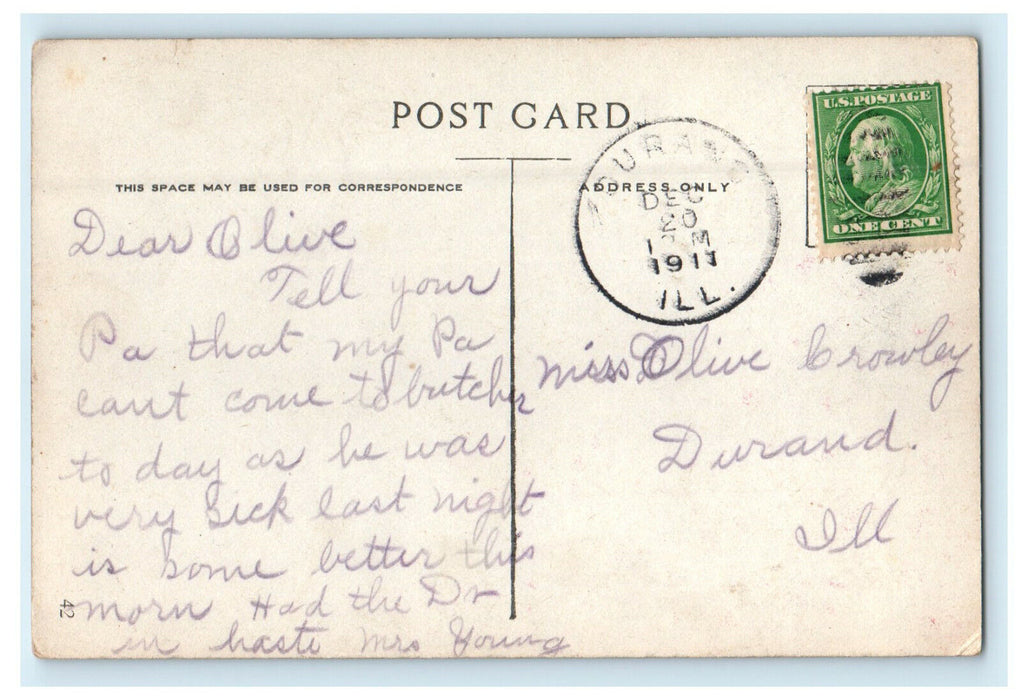 POST CARD
THIS SPACE MAY BE USED FOR CORRESPONDENCE
ADDRESS ONLY
U.S. POSTAGE
ONE CENT
DURAND
DEC
20
M
1911
ILL.
Dear Olive
Tell your
Pa that my Pa
cant come to butcher
to day as he was
very sick last night
is some better this
morn Had the Dr
in haste Mrs Young
Miss Olive Crowley
Durand.
Ill
42